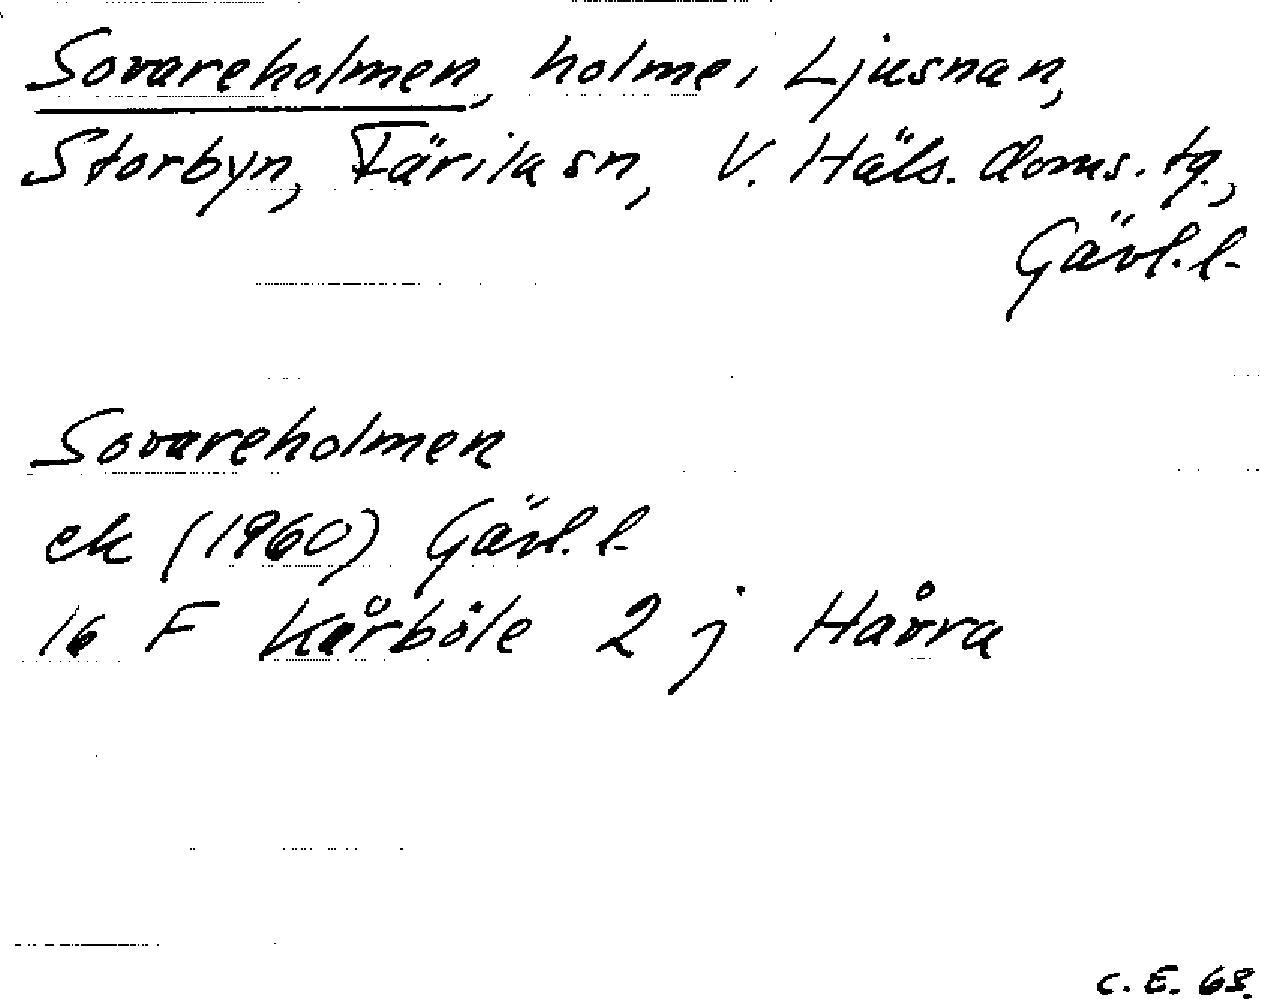 Sovareholmen, holme i Ljusnan,
Storbyn, Färila sn, V. Häls. doms. tg.,
Gävl. l.
Sovareholmen
ek (1960) Gävl. l.
16 F Kårböle 2 j Håvra
C. E. 68.